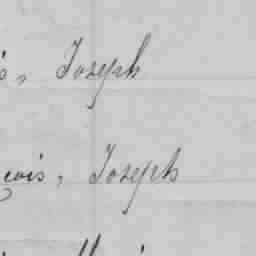 s, Joseph
çois, Joseph